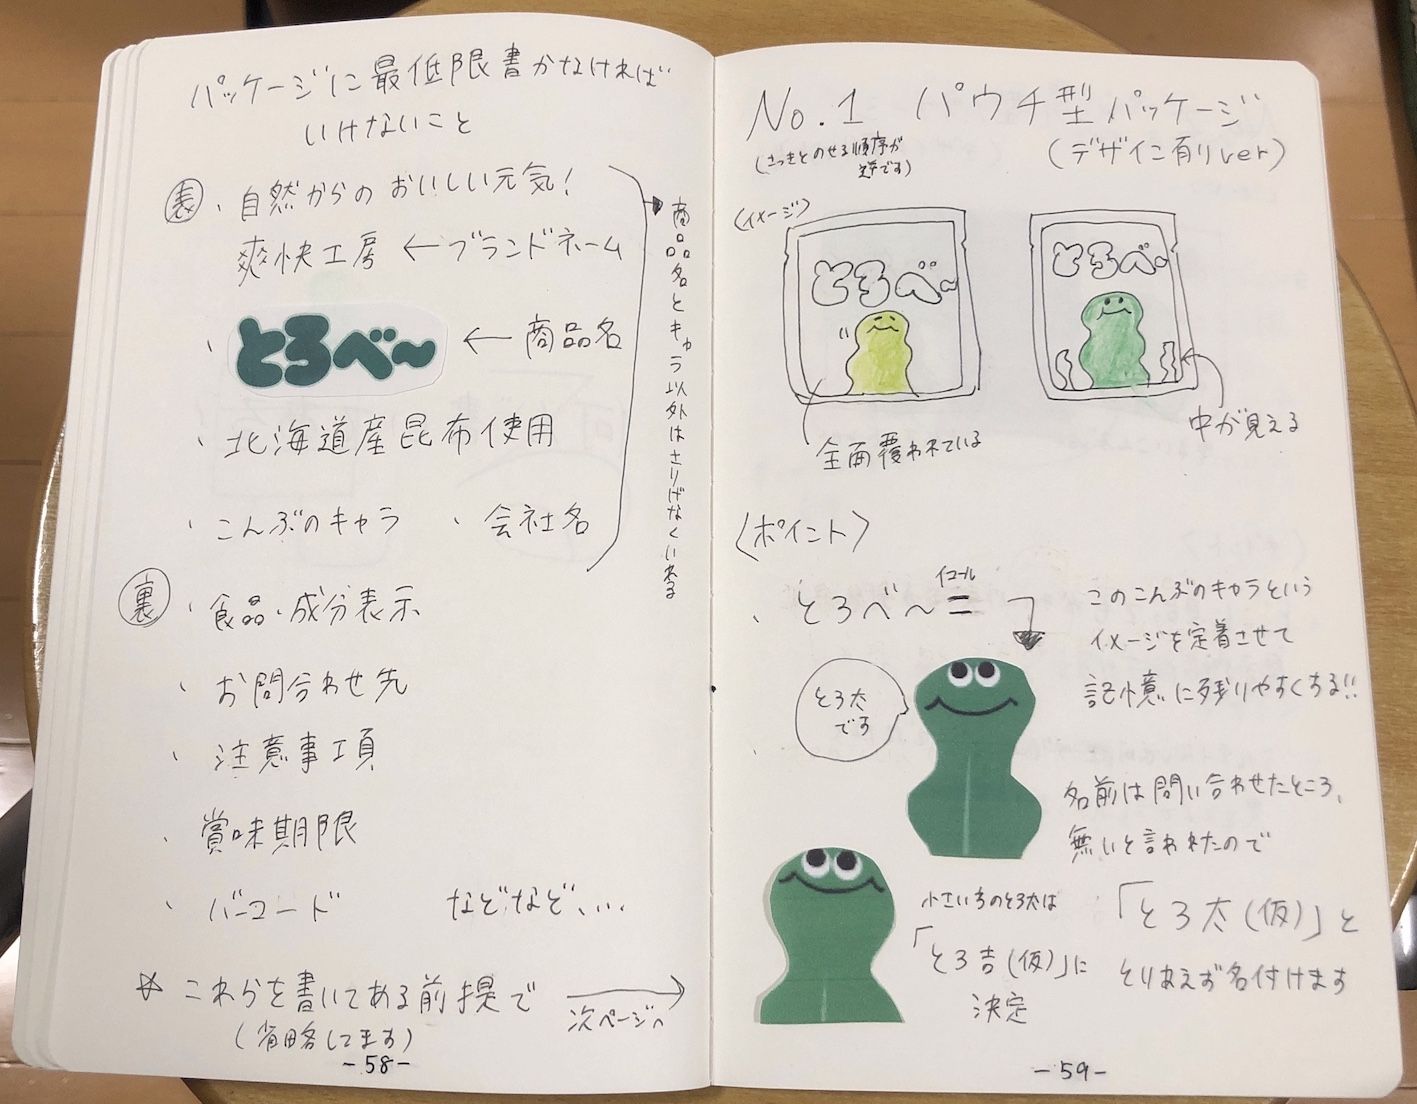 パッケージに最低限書かなければ
いけないこと
表
・自然からのおいしい元気!
爽快工房←ブランドネーム
・とろべ〜 ←商品名
・北海道産昆布使用
・こんぶのキャラ ・会社名
商品名とキャラ以外はさりげなくいれる
裏
・食品・成分表示
・お問合わせ先
・注意事項
・賞味期限
・バーコード などなど、、、
☆これらを書いてある前提で
(省略してます)
次ページへ
-58-
No.1 パウチ型パッケージ
(さっきとのせる順序が
逆です)
(デザイン有りver)
〈イメージ〉
とろべ〜
とろべ〜
全面覆われている
中が見える
〈ポイント〉
・とろべ〜=
イコール
このこんぶのキャラという
イメージを定着させて
記憶に残りやすくする!!
とろ太
です
名前は問い合わせたところ、
無いと言われたので
「とろ太(仮)」と
とりあえず名付けます
小さい方のとろ太は
「とろ吉(仮)」に
決定
-59-